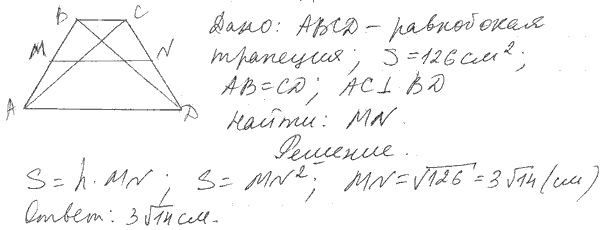 B C
M N
A D
Дано: ABCD – равнобокая
трапеция; S=126 см²;
AB=CD; AC⊥BD
Найти: MN.
Решение.
S=h·MN; S=MN²; MN=√126=3√14 (см)
Ответ: 3√14 см.